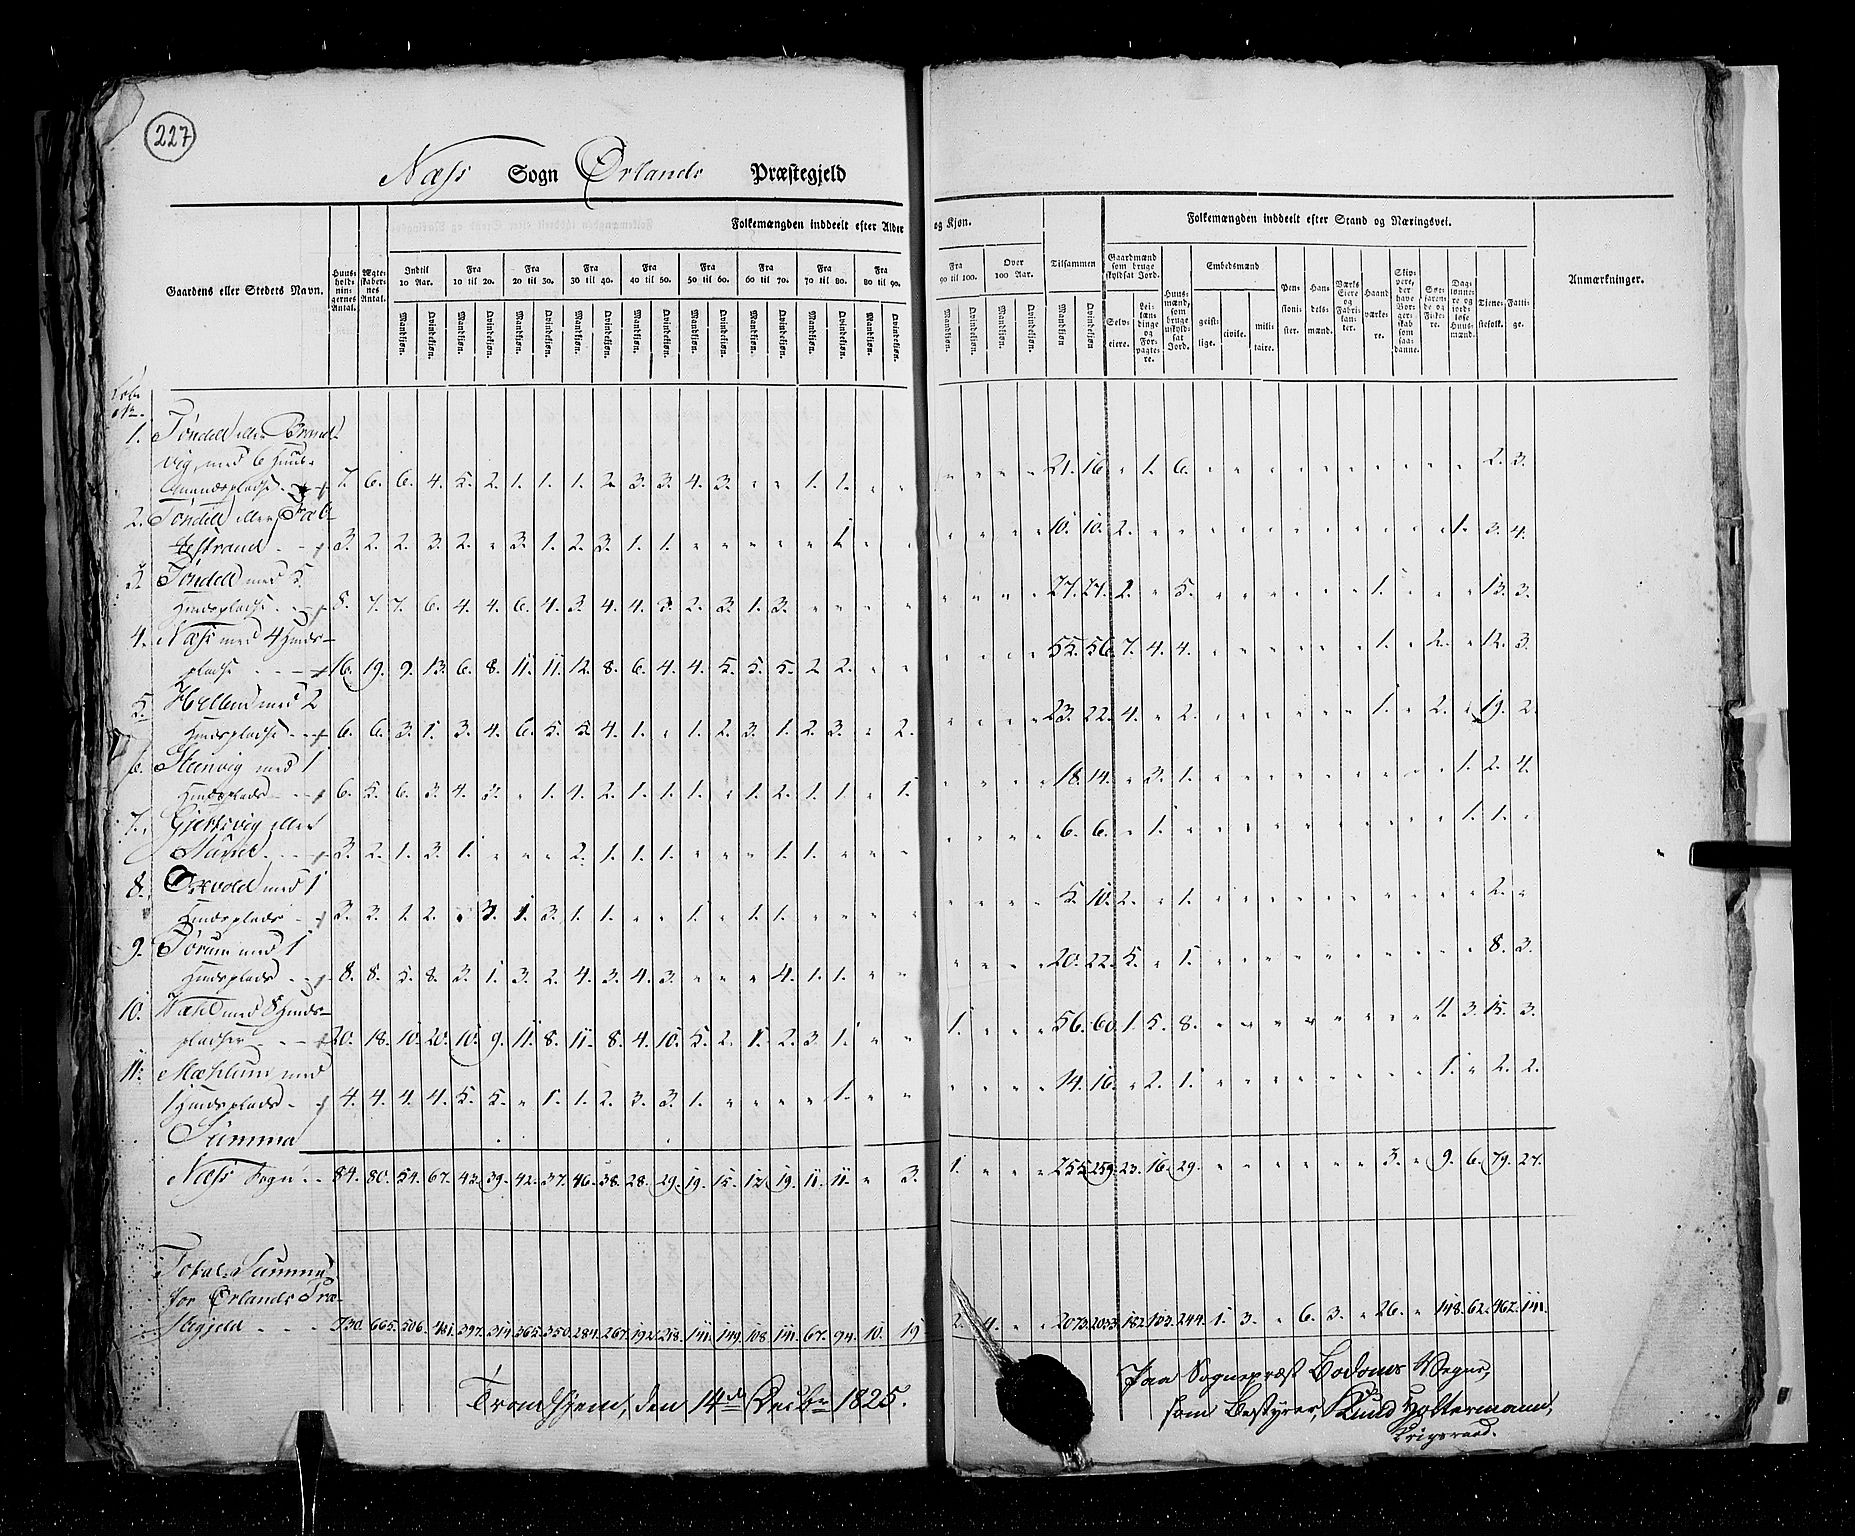 227
Næss Sogn Ørlands Præstegjeld
Folkemængden inddeelt efter Alder og Kjøn.
Folkemængden inddeelt efter Stand og Næringsvei.
Gaardens eller Stedets Navn.
Huusholdningernes Antal.
Ægteskabernes Antal.
Indtil 10 Aar.
Fra 10 til 20.
Fra 20 til 30.
Fra 30 til 40.
Fra 40 til 50.
Fra 50 til 60.
Fra 60 til 70.
Fra 70 til 80.
Fra 80 til 90.
Fra 90 til 100.
Over 100 Aar.
Tilsammen
Mandkjøn. Qvindekjøn.
Gaardmænd som bruge skyldsat Jord.
Selveiere.
Leilændinge og Forpagtere.
Huusmænd, som bruge uskyldsat Jord.
Embedsmænd
geistlige.
civile.
militaire.
Pensionister.
Handelsmænd.
Værks Eiere og Fabrikanter.
Haandværkere.
Skippere, der have Borgerskab som saadanne.
Søefarende og Fiskere.
Daglønnere og jordløse Huusmænd.
Tjenestefolk.
Fattige.
Anmærkninger.
1. Tøndell eller Brand-
vig, med 6 Huus-
mandspladse 7. 6. 6. 4. 5. 2. 1. 1. 1. 2. 3. 3. 4. 3. " " 1. 1. " " " " " " 21. 16. " 1. 6. " " " " " " " " " " 2. 3.
2. Tøndell eller
strand 3. 2. 2. 3. 2. " 3. 1. 2. 3. 1. 1. " " " " " 1. " " " " " " 10. 10. 2. " " " " " " " " " " " 1. 3. 4.
3. Tøndell med 5
Huuspladse 8. 7. 7. 6. 4. 4. 6. 4. 3. 4. 4. 3. 2. 3. 1. 3. " " " " " " " " 27. 27. 2. " 5. " " " " " " 1. " " " 13. 3.
4. Næss med 4 Huus-
pladse 16. 19. 9. 13. 6. 8. 11. 11. 12. 8. 6. 4. 4. 5. 5. 5. 2. 2. " " " " " " 55. 56. 7. 4. 4. " " " " " " 1. " 2. " 12. 3.
5. Hellem med 2
Huuspladse 6. 6. 3. 1. 3. 4. 6. 5. 5. 4. 1. " 1. 2. 3. 1. 2. 3. " 2. " " " " 23. 22. 4. " 2. " " " " " " 1. " 2. " 19. 2.
6. Steenvig med 1
Huusplads 6. 5. 6. 3. 4. 3. " 1. 4. 2. 1. 1. 1. " 1. 2. 1. 1. " 1. " " " " 18. 14. " 3. 1. " " " " " " " " " 1. 2. 4.
7. Gjertsvig eller
3. 2. 1. 3. 1. " " " 2. 1. 1. 1. " " " 1. 1. " " " " " " " 6. 6. " 1. " " " " " " " " " " 1. 1. "
8. Oxvold med 1
Huusplads 3. 3. 1. 2. " 3. 1. 3. 1. 1. " " 1. " 1. 1. " " " " " " " " 5. 10. 2. " 1. " " " " " " " " " " 2. "
9. Tørum med 1
Huusplads 8. 8. 5. 8. 3. 1. 3. 2. 4. 3. 4. 3. " " " 4. 1. 1. " " " " " " 20. 22. 5. " 1. " " " " " " " " " " 8. 3.
10. med 8 Huus-
pladser 20. 18. 10. 20. 10. 9. 11. 8. 11. 8. 4. 10. 5. 2. 1. 2. 3. 1. " " 1. " " " 56. 60. 1. 5. 8. " " " " " " " " 4. 3. 15. 3.
11. Mæhlum med
1 Huusplads 4. 4. 4. 4. 5. 5. " 1. 1. 2. 3. 3. 1. " " " " 1. " " " " " " 14. 16. " 2. 1. " " " " " " " " 1. " 2. 2.
Summa
Næss Sogn 84. 80. 54. 67. 43. 39. 42. 37. 46. 38. 28. 29. 19. 15. 12. 19. 11. 11. " 3. 1. " " " 255. 259. 23. 16. 29. " " " " " " 3. " 9. 6. 79. 27.
Total Summa
for Ørlands Præ-
stegjeld 730. 665. 506. 481. 397. 314. 365. 350. 284. 267. 192. 218. 141. 149. 108. 141. 67. 94. 10. 19 2. 4. " " 2073. 2033. 182. 103. 244. 1. 3. " 6. 3. " 26. " 148. 62. 467. 141.
Trondhjem, den 14de Decbr 1825.
Paa Sognepræst Bodoms Vegne,
som Bestyrer, Knud Holtermann,
Krigsraad.